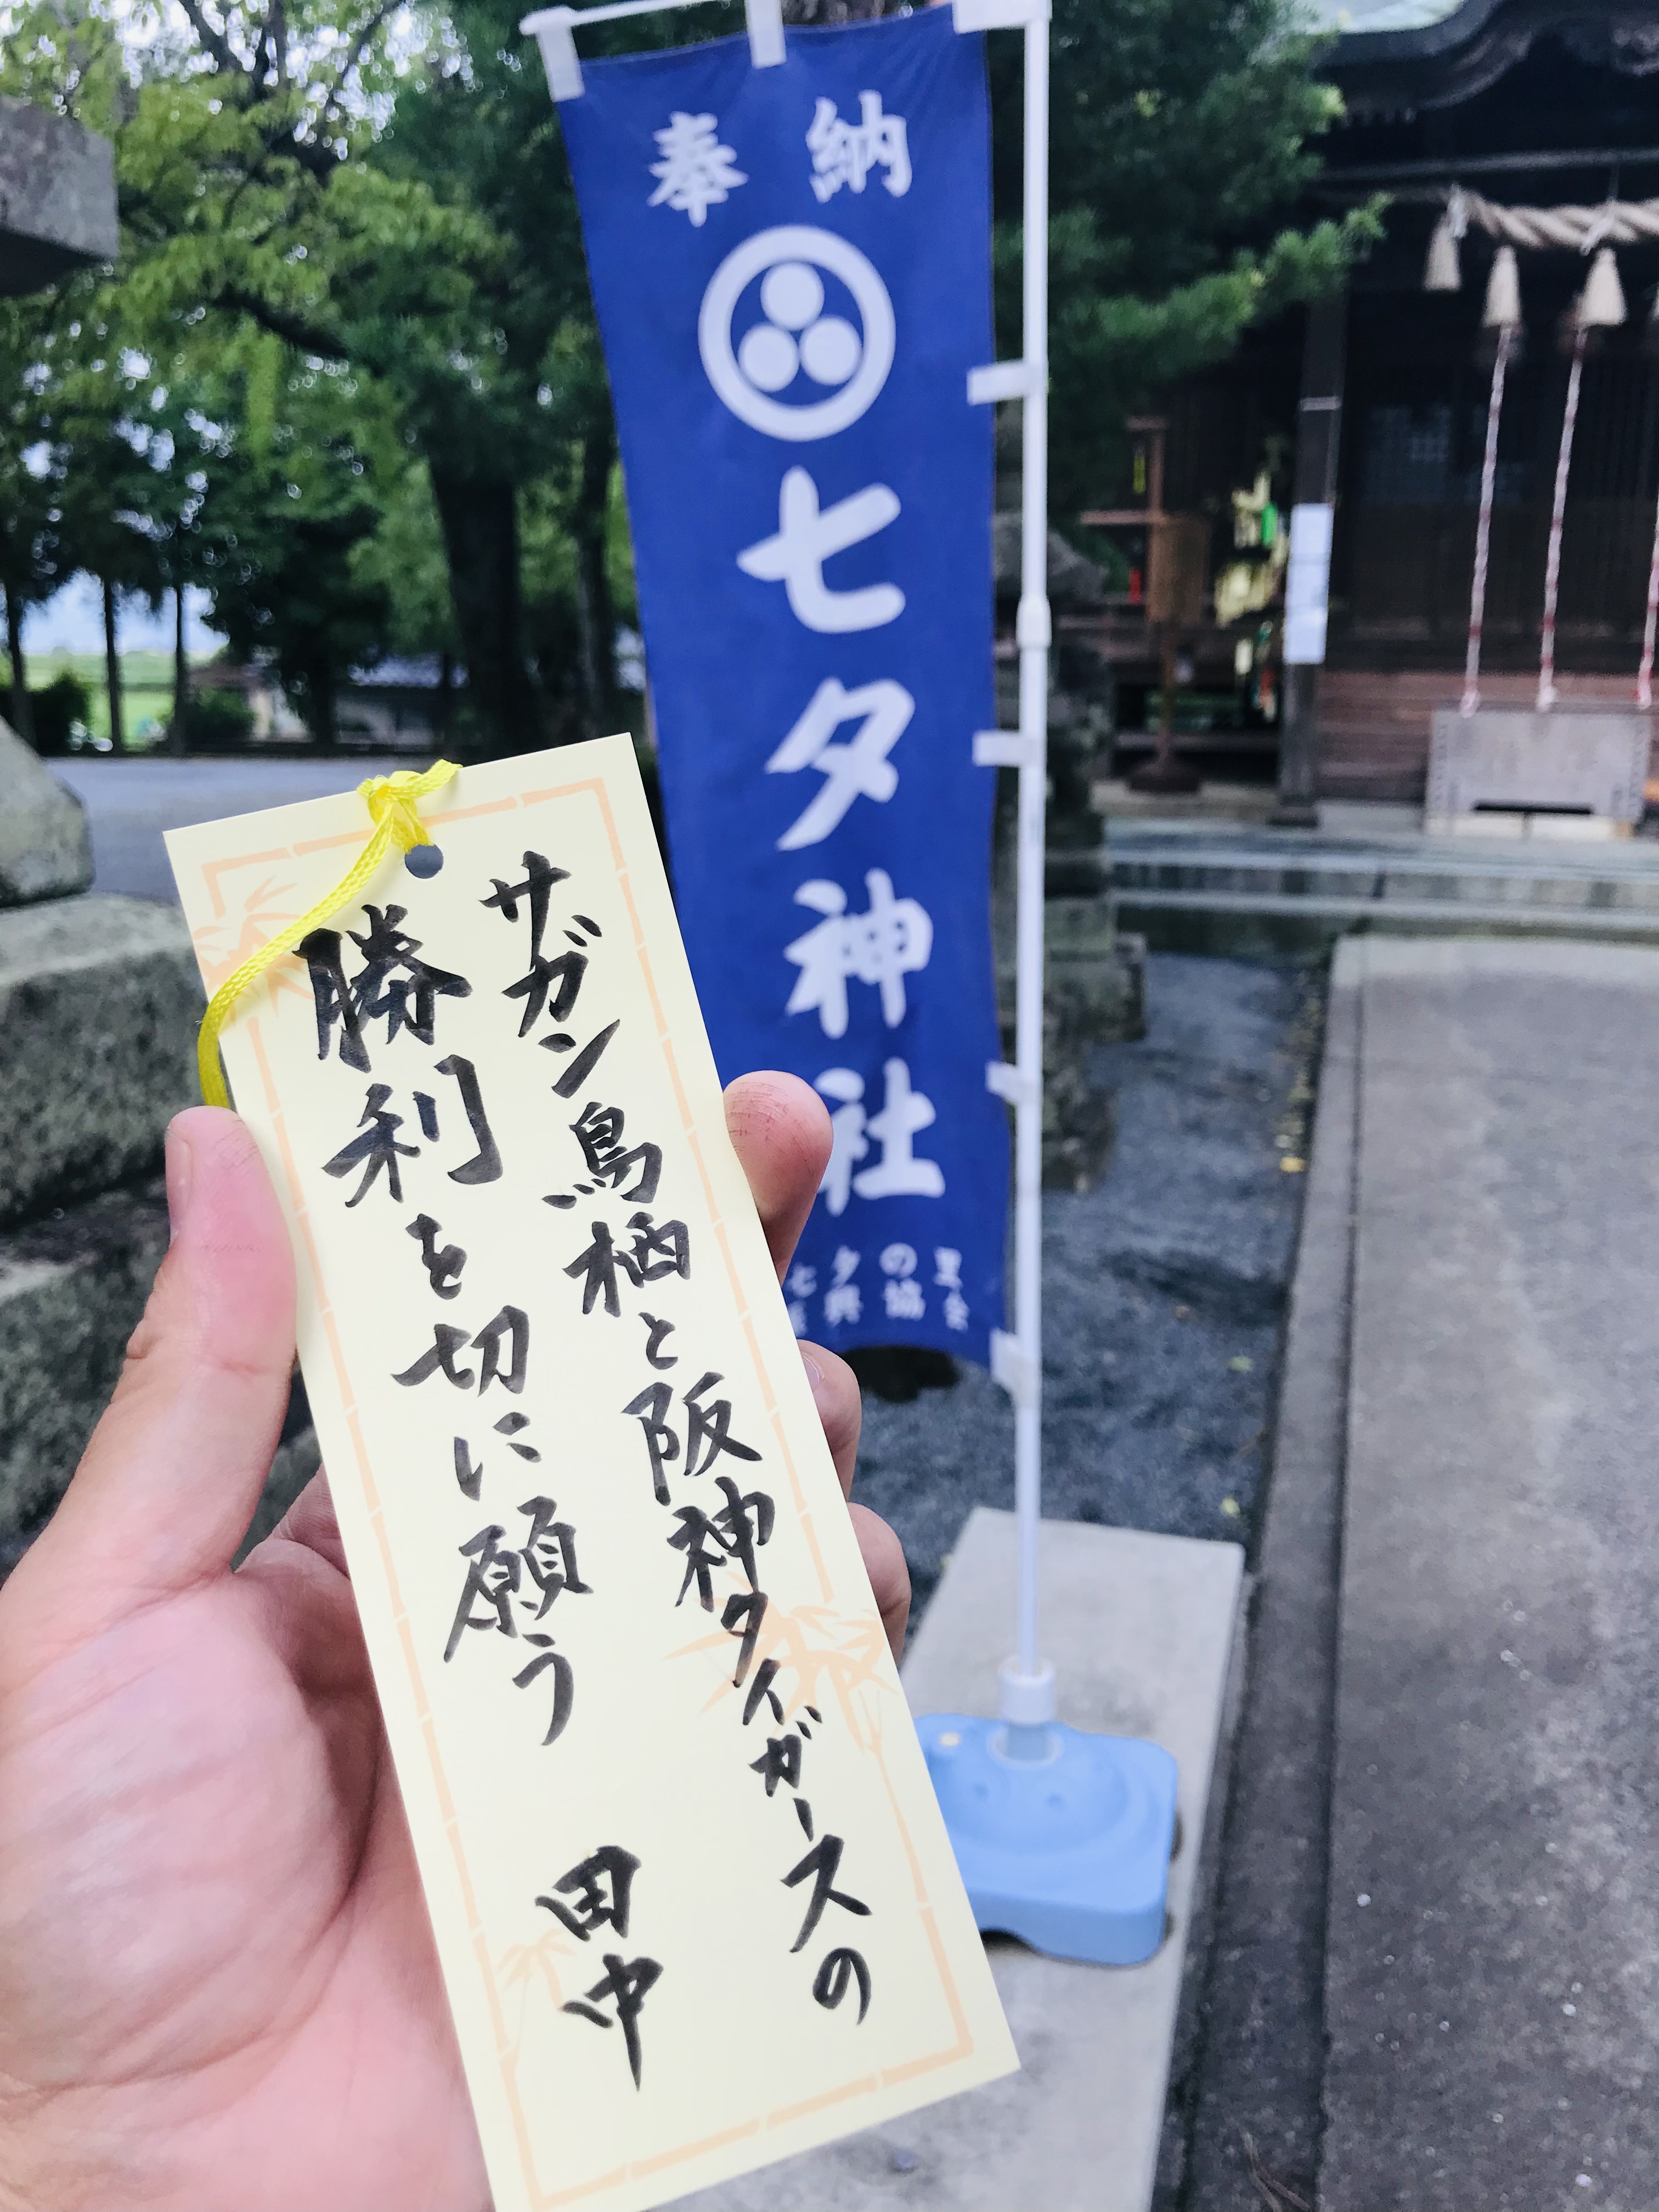 奉納
七夕神社
七夕の里
振興協会
サガン鳥栖と阪神タイガースの
勝利を切に願う 田中